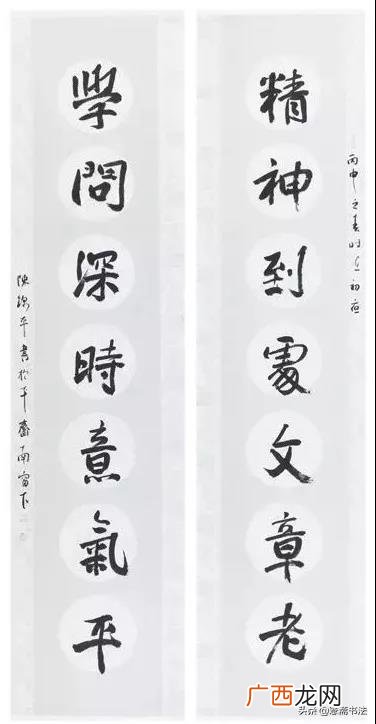 丙申之春时初
精神到處文章老
學問深時意氣平
陳平書於齋南窗下
头条 @斋书法
广西龙网